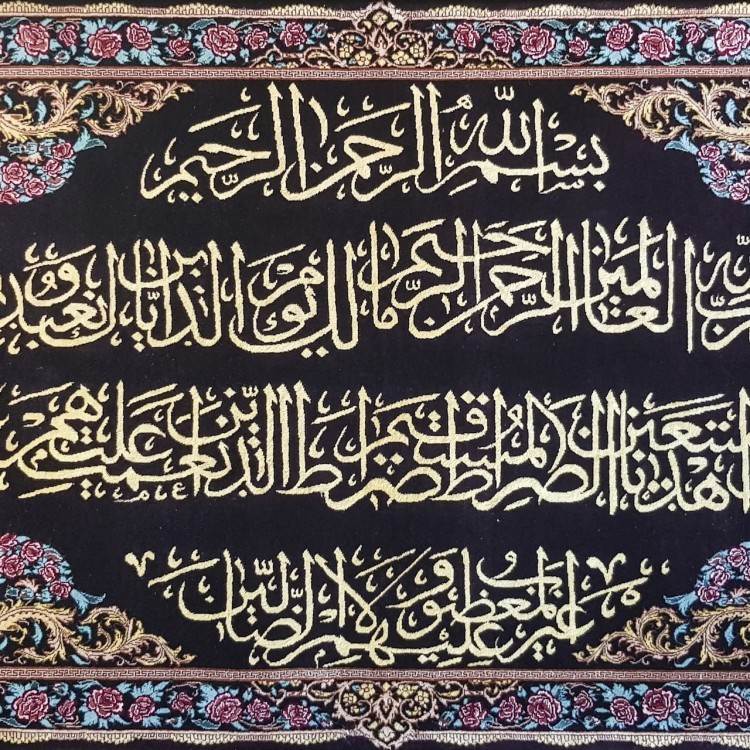 بسم الله الرحمن الرحيم
لله رب العالمين الرحمن الرحيم مالك يوم الدين اياك نعبد و
نستعين اهدنا الصراط المستقيم صراط الذين انعمت عليهم
غير المغضوب عليهم ولا الضالين